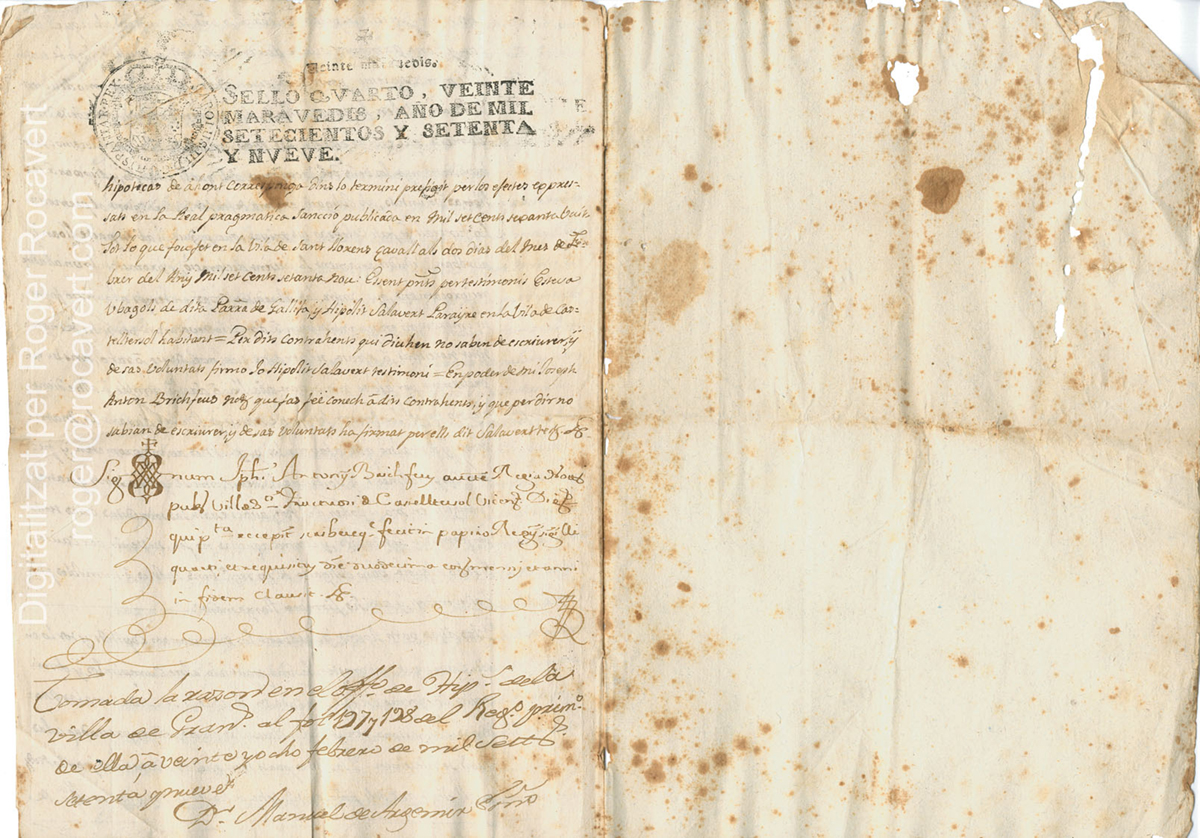 Veinte maravedis.
SELLO QVARTO, VEINTE
MARAVEDIS, AÑO DE MIL
SETECIENTOS Y SETENTA
Y NVEVE.
hipotecas de apont dins lo termini prefigit per los efectes expres-
sats en la Real pragmatica Sanccio publicada en Mil set cents sexanta vuit
Tot lo que fou fet en la Vila de Sant Llorens Çavall als dos dias del Mes de Fe-
brer del Any Mil set cents setanta nou: Essent pnts per testimonis Esteva
Ubagols de dita Parra de Gallifa y Hipolit Salavert Parayre en la Vila de Cas-
tellersol habitant = Per dits contrahents qui diuhen no saber de escriurer, y
de sas voluntats firmo Jo Hipolit Salavert testimoni = En poder de mi Joseph
Anton Brichfeus not. que fas feè conech à dits contrahents, y que per dir no
sabian de escriurer, y de sas voluntats ha firmat per ells dit Salavert test. &c.
Sig num Jph. Antony Brichfeus auctè Regia Notarÿ
pub. villæ de Castellersol Vicen. Diæc.
qui pta recepit scribereq. fecit in papiro Regÿ sigilli
quarti, et requisitus die duodecima eosq. mensis et anni
in fidem clausit. &c.
Tomada la razon en el Offo. de Hips. de la
villa de Grans. al fol. 127 y 128 del Rego. primo.
de ella à veinte y ocho febrero de mil sets.
setenta y nueve
Dr. Manuel de Argemir Esno
Digitalitzat per Roger Rocavert
roger@rocavert.com